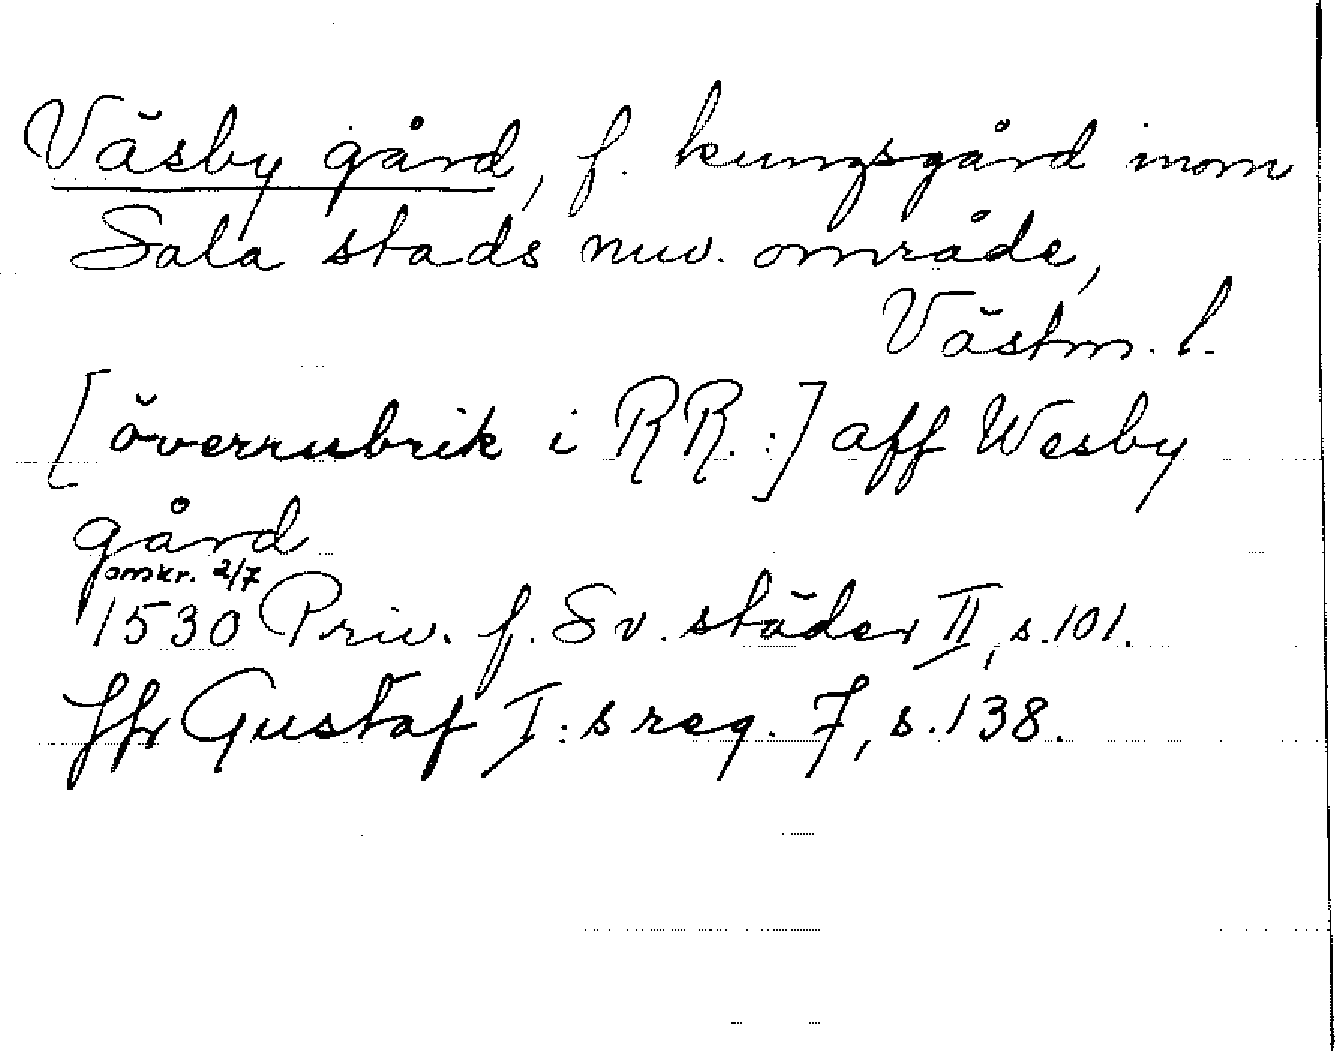 Väsby gård, f. kungsgård inom
Sala stads nuv. område,
Västm. l.
[överrubrik i RR.:] aff Wesby
gård
omkr. 2/7
1530 Priv. f. Sv. städer II, s.101.
Jfr Gustaf I:s reg. 7, s.138.